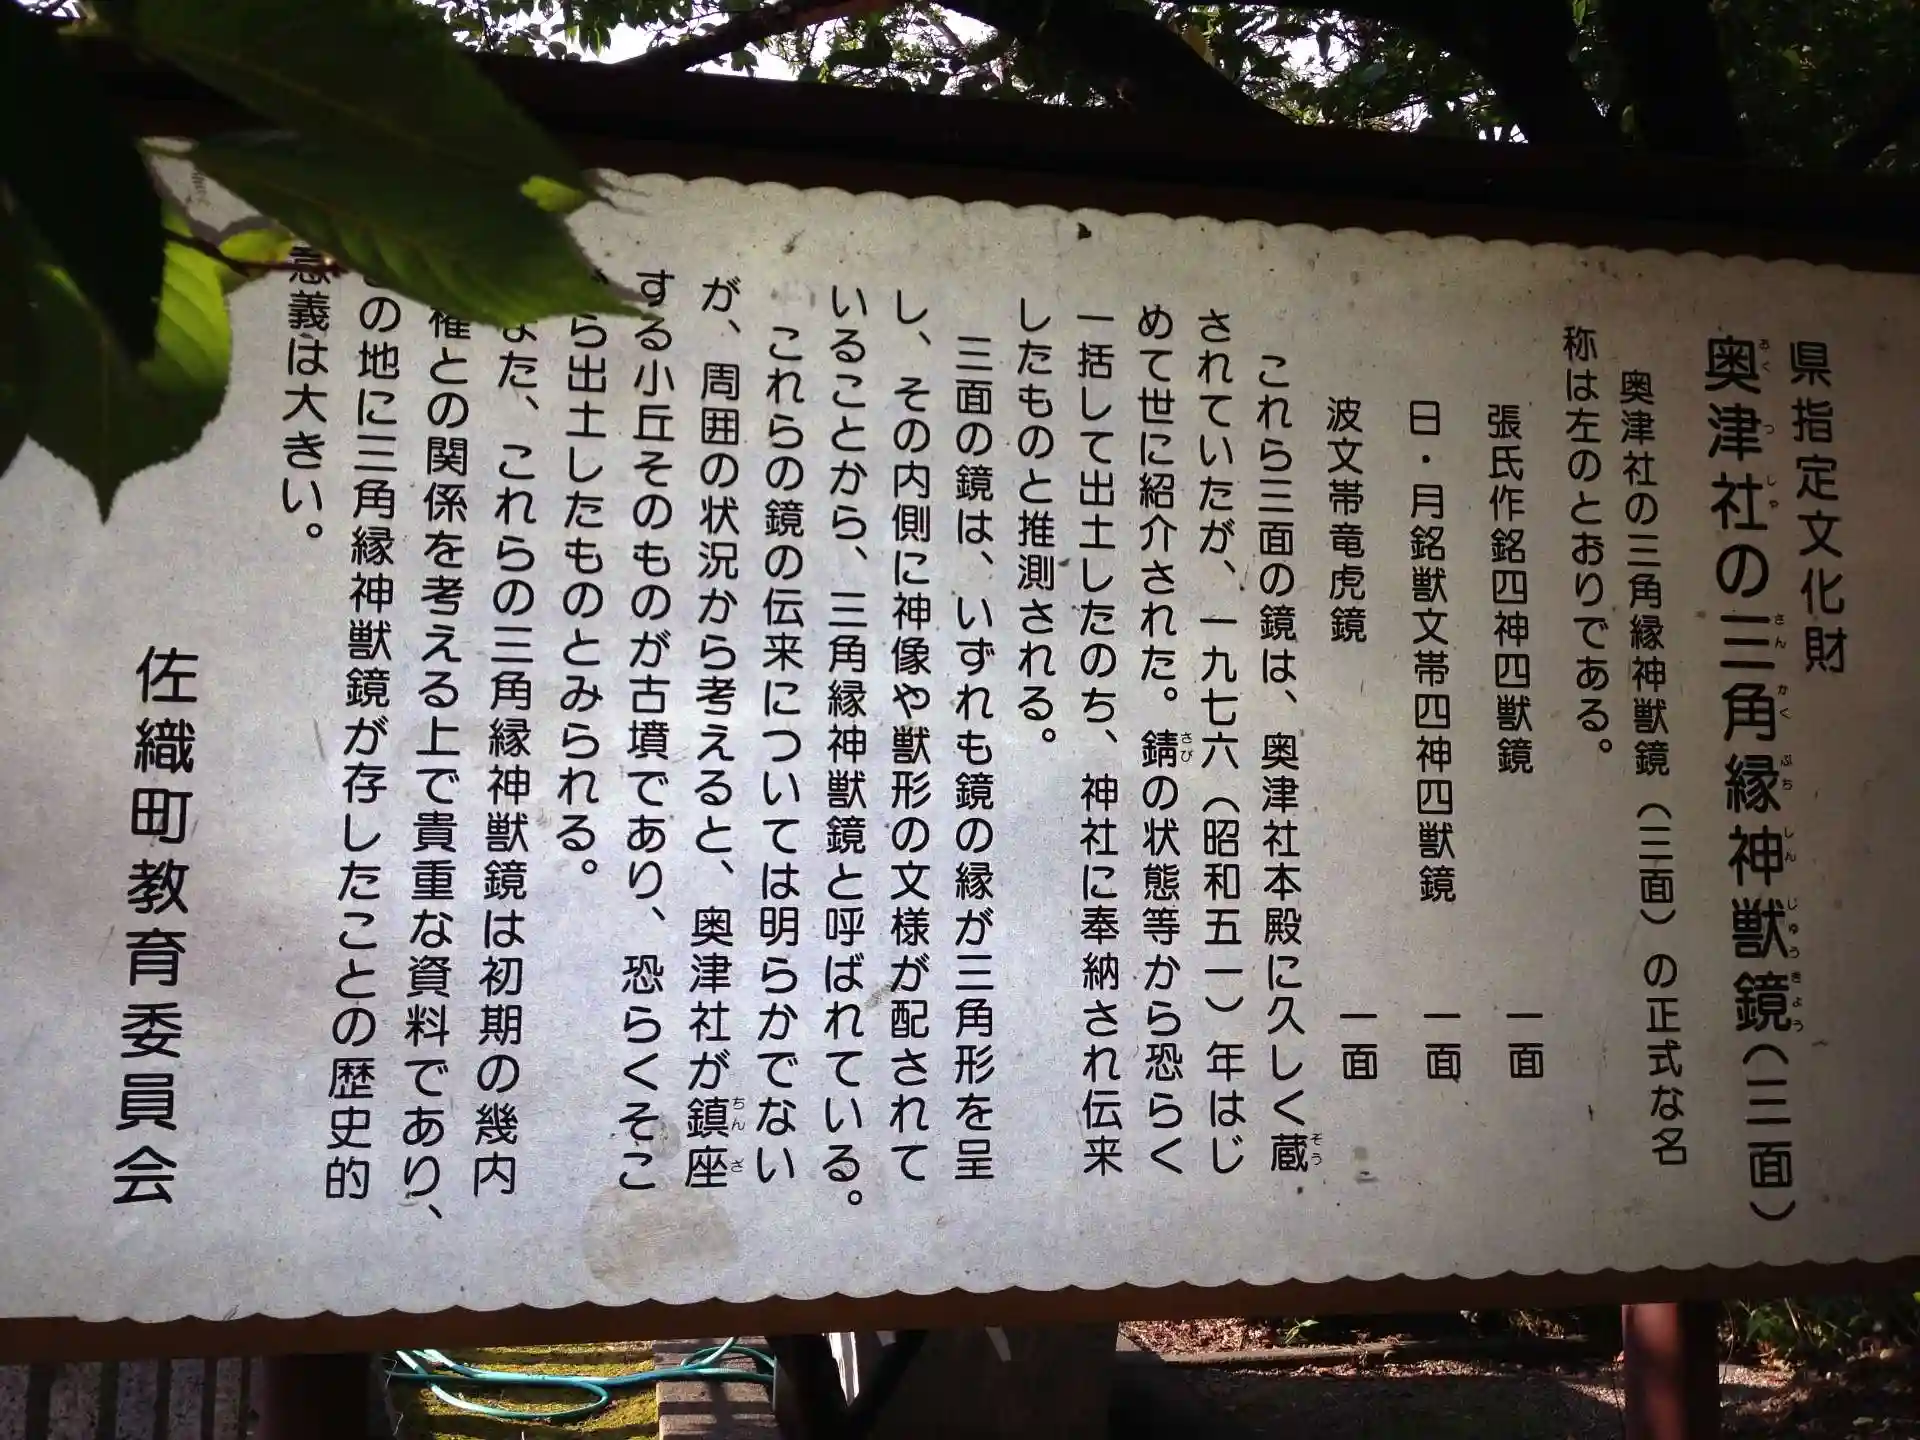 県指定文化財
奥津社の三角縁神獣鏡(三面)
おくつしゃ さんかくぶちしんじゅうきょう
奥津社の三角縁神獣鏡(三面)の正式な名
称は左のとおりである。
張氏作銘四神四獣鏡 一面
日・月銘獣文帯四神四獣鏡 一面
波文帯竜虎鏡 一面
これら三面の鏡は、奥津社本殿に久しく蔵
ぞう
されていたが、一九七六(昭和五一)年はじ
めて世に紹介された。錆の状態等から恐らく
さび
一括して出土したのち、神社に奉納され伝来
したものと推測される。
三面の鏡は、いずれも鏡の縁が三角形を呈
し、その内側に神像や獣形の文様が配されて
いることから、三角縁神獣鏡と呼ばれている。
これらの鏡の伝来については明らかでない
が、周囲の状況から考えると、奥津社が鎮座
ちんざ
する小丘そのものが古墳であり、恐らくそこ
ら出土したものとみられる。
た、これらの三角縁神獣鏡は初期の幾内
権との関係を考える上で貴重な資料であり、
の地に三角縁神獣鏡が存したことの歴史的
意義は大きい。
佐織町教育委員会